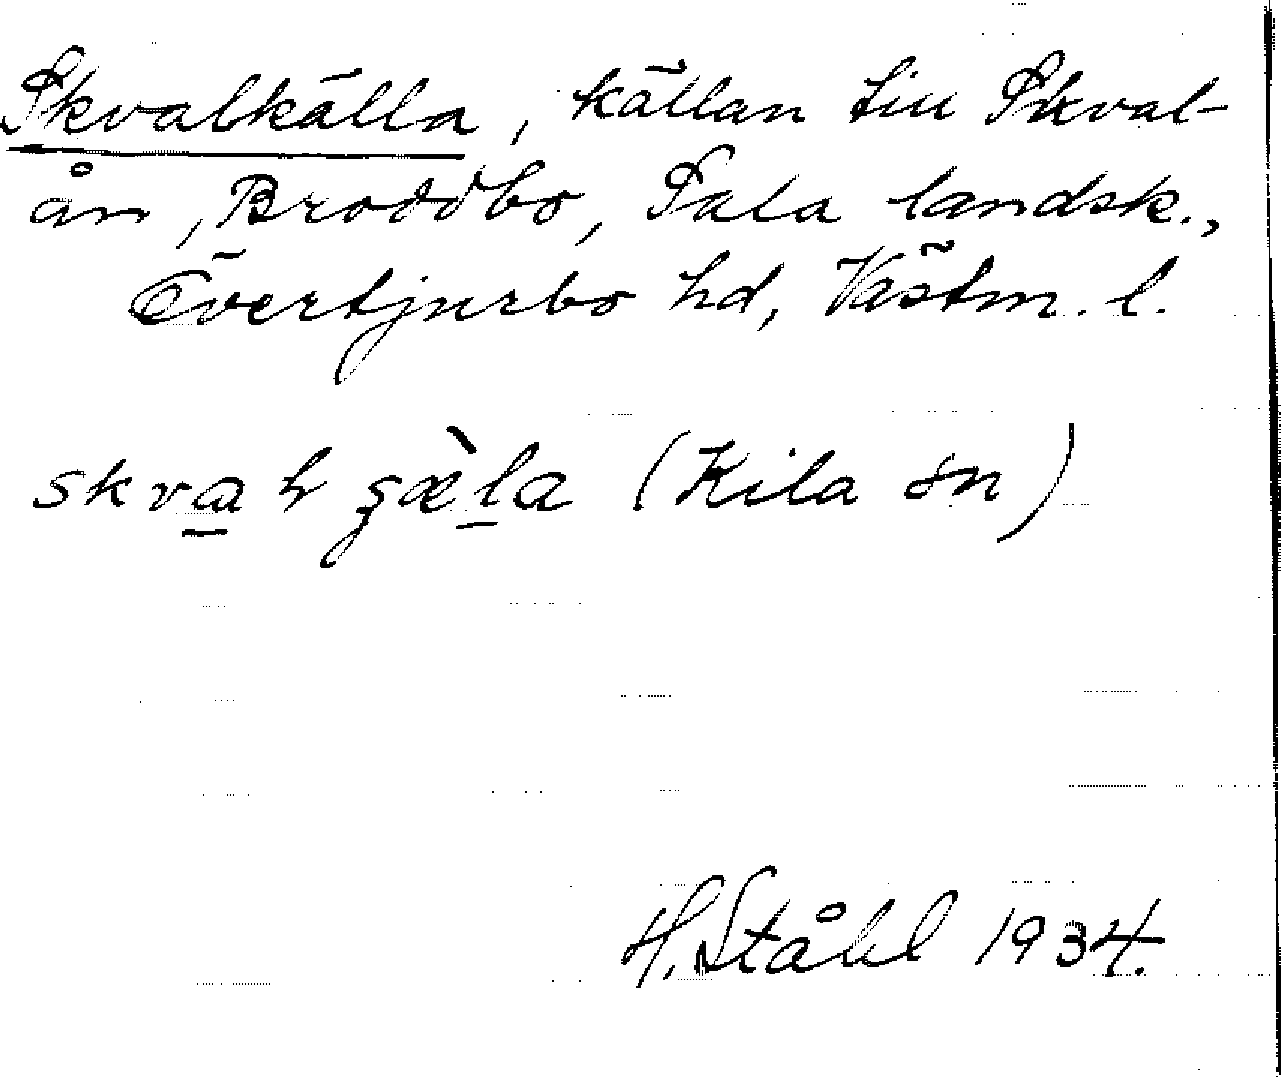 Skvalkälla, källan till Skval-
ån, Broddbo, Sala landsk.,
Övertjurbo hd, Västm. l.
(Kila sn)
H. Ståhl 1934.